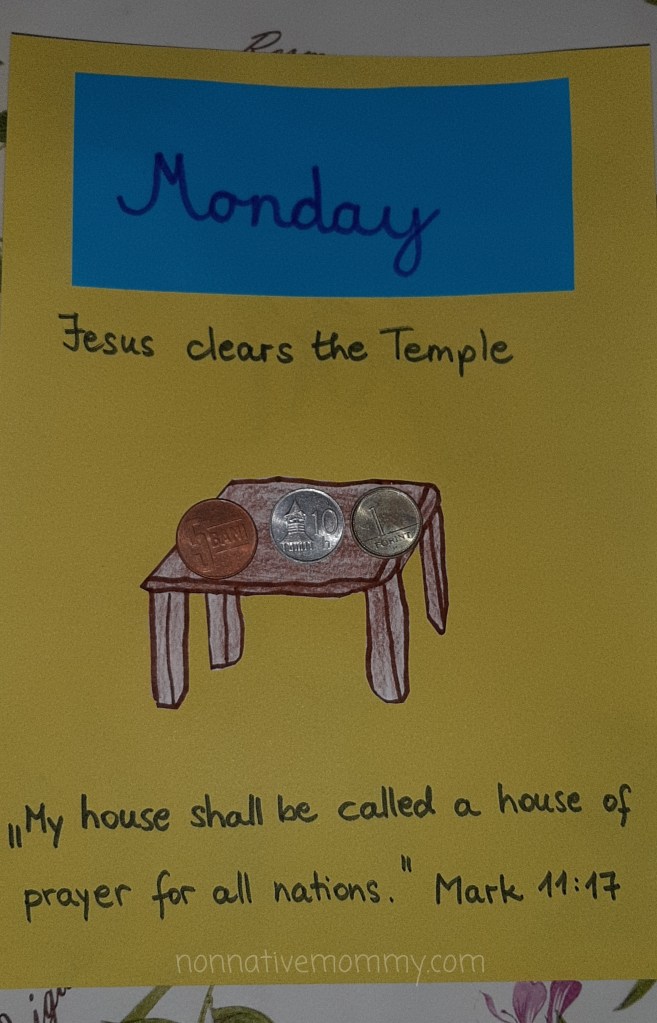 Monday
Jesus clears the Temple
5 BANI
10 h
1
FORINT
„My house shall be called a house of
prayer for all nations." Mark 11:17
nonnativemommy.com